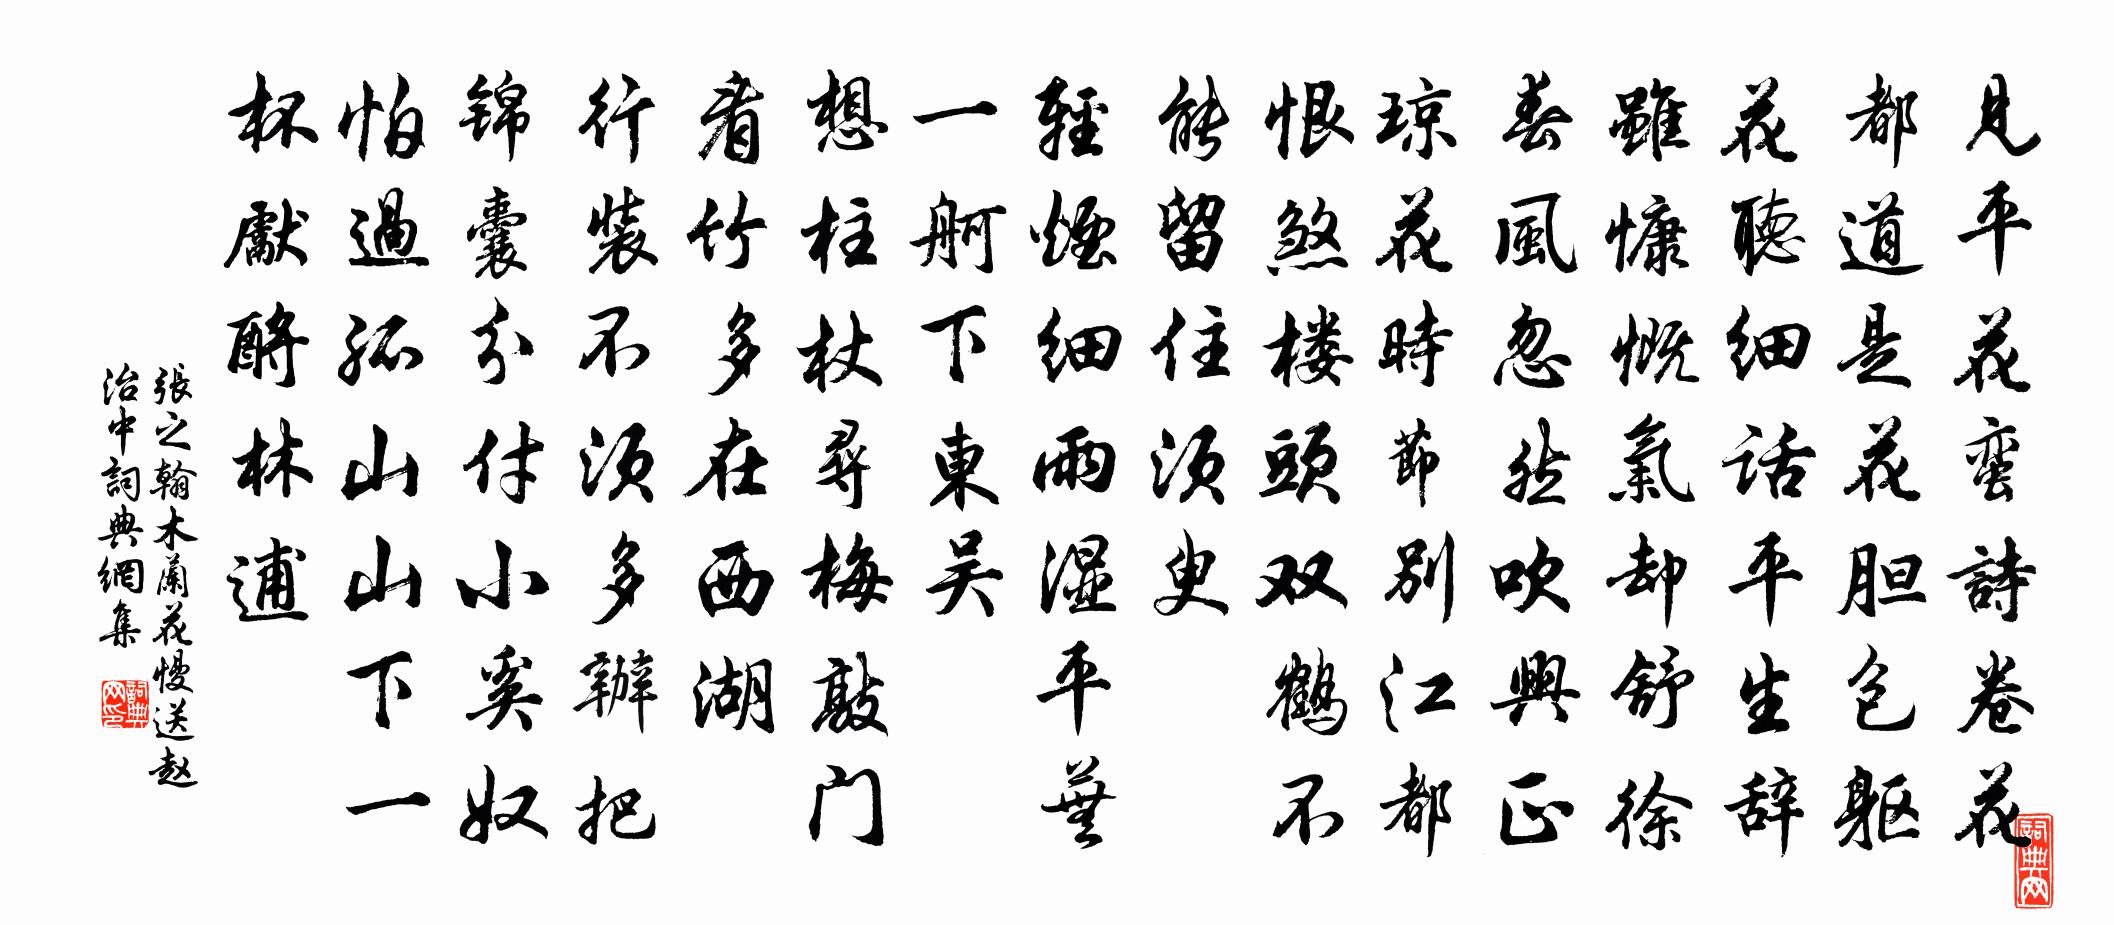 见平花蛮詩卷花
都道是花胆包躯
花聽细话平生辞
雖慷慨氣却舒徐
春風忽然吹興正
琼花時節别江都
恨煞楼頭双鹤不
能留住须臾
輕煙细雨湿平蕪
一舸下東吴
想柱杖尋梅敲门
看竹多在西湖
行装不须多辦把
锦囊分付小奚奴
怕過孤山山下一
杯獻酹林逋
張之翰木蘭花慢送赵
治中詞典網集
詞典网
詞典网印